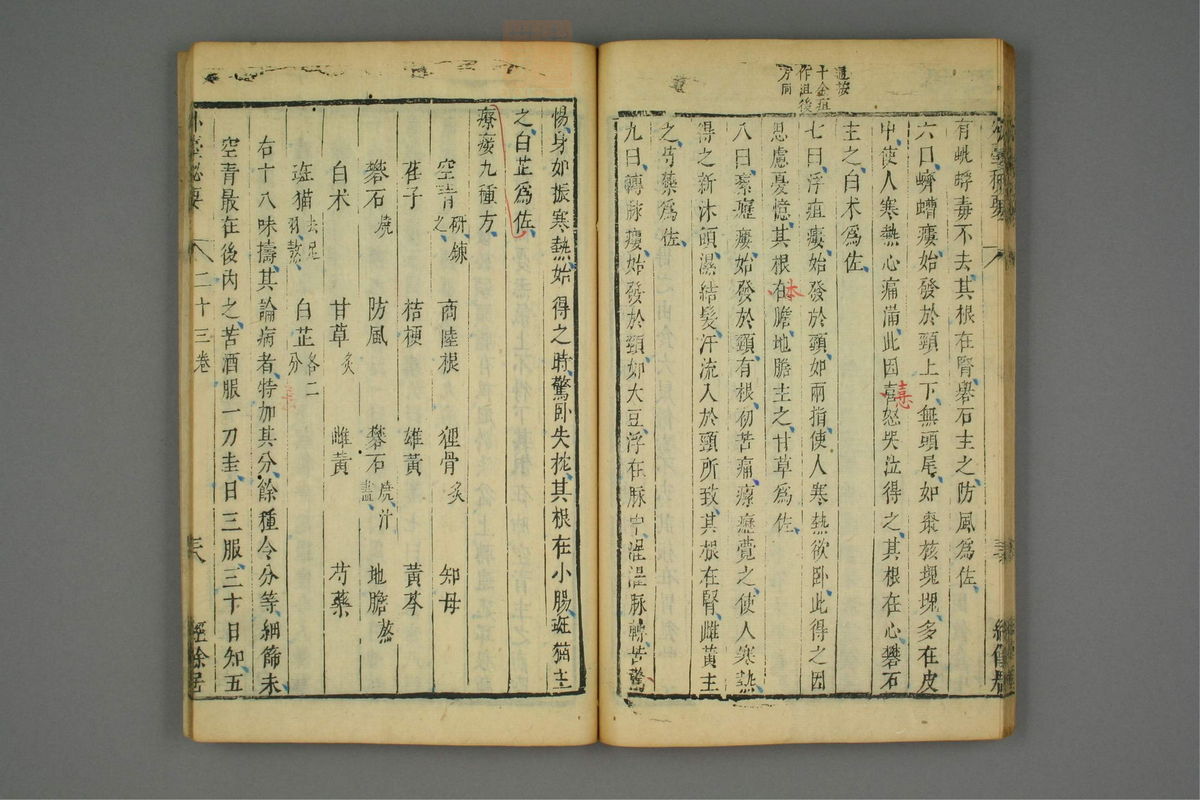 遁按
千金疽
作沮後
方同
有蚍蜉毒不去其根在腎礜石主之防風爲佐
六曰蠐螬瘻始發於頸上下無頭尾如棗核塊塊多在皮
中使人寒熱心痛滿此因喜怒哭泣得之其根在心礬石
主之白术爲佐
七曰浮疽瘻始發於頸如兩指使人寒熱欲卧此得之因
思慮憂憶其根在膽地膽主之甘草爲佐
八曰瘰癧瘻始發於頸有根初苦痛瘰癧覺之使人寒熱
得之新沐頭濕結髮汗流入於頸所致其根在腎雌黃主
之芍藥爲佐
九曰轉脉瘻始發於頸如大豆浮在脉中濯濯脉轉苦驚
惕身如振寒熱始得之時驚卧失枕其根在小腸斑猫主
之白芷爲佐
療瘻九種方
空青研鍊之 商陸根 狸骨炙 知母
荏子 桔梗 雄黃 黃芩
礜石燒 防風 礬石燒汁盡 地膽熬
白术 甘草炙 雌黃 芍藥
斑猫去足羽熬 白芷各二分
右十八味擣其論病者特加其分餘種令分等細篩末
空青最在後内之苦酒服一刀圭日三服三十日知五
外臺秘要 二十三卷 三六 經餘居